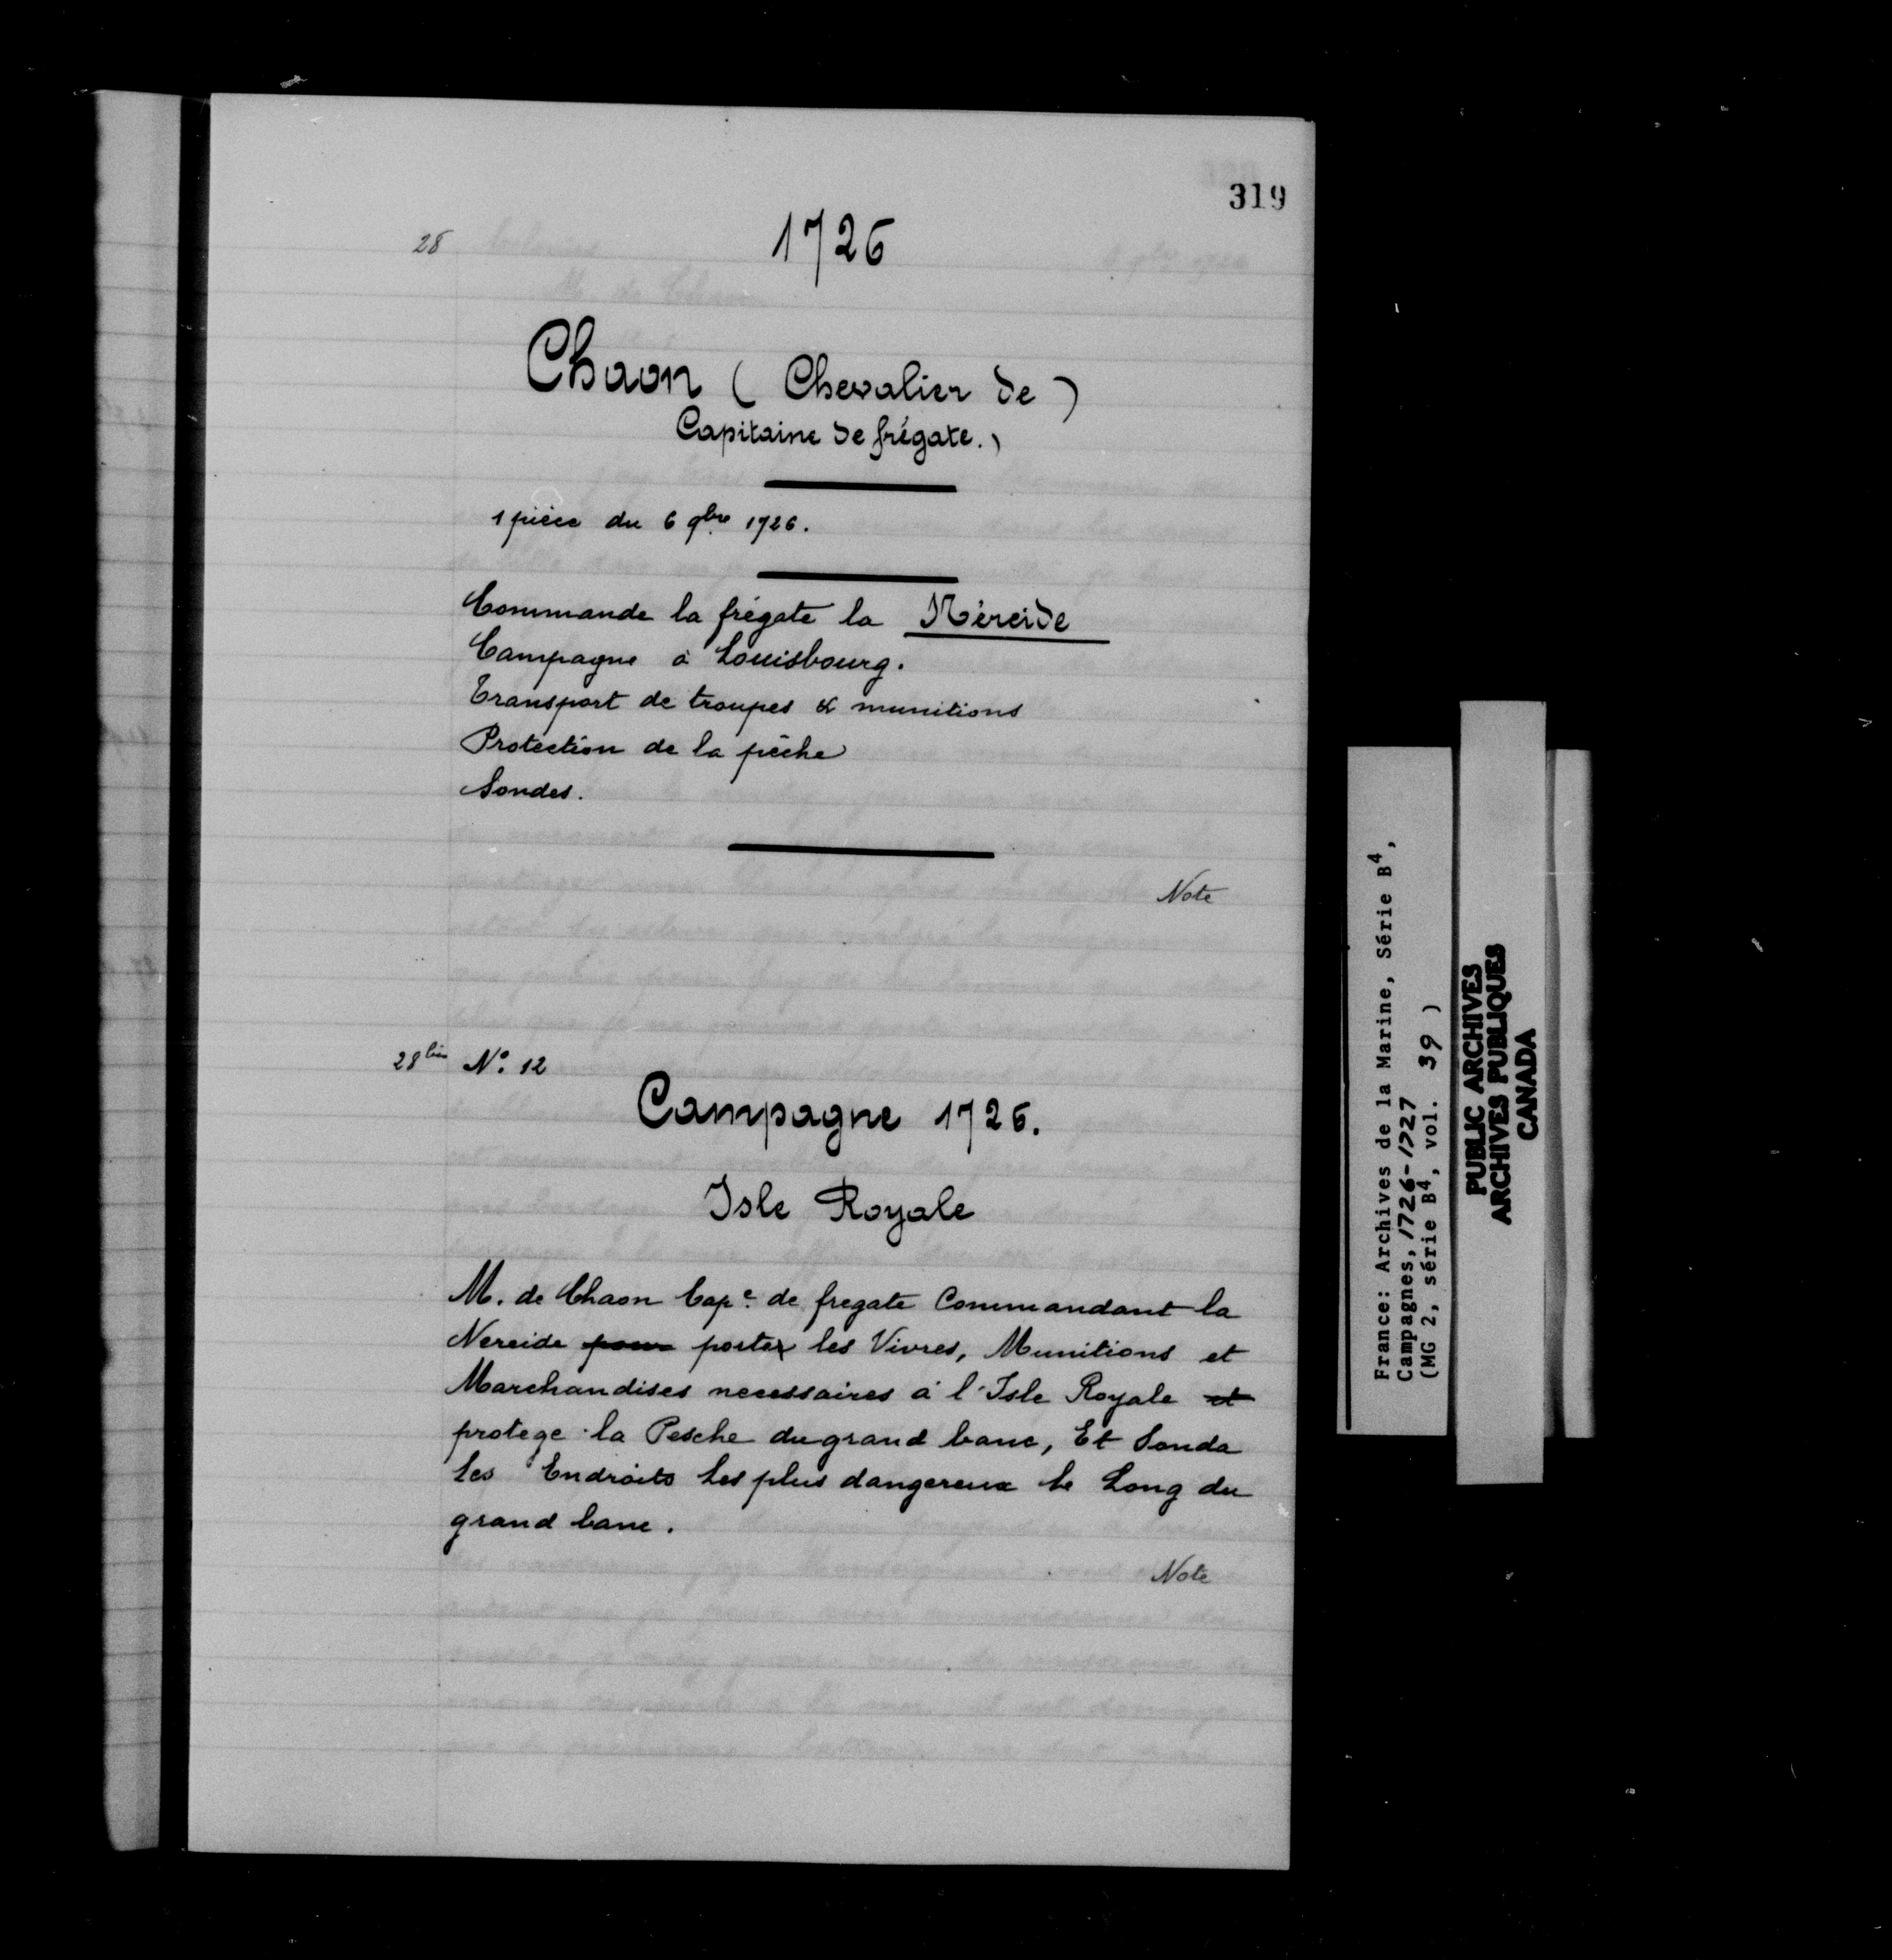 319
28
1726
Chaon ( Chevalier de )
Capitaine de frégate. )
1 pièce du 6 9bre 1726.
Commande la frégate la Néreide
Campagne à Louisbourg.
Transport de troupes & munitions
Protection de la pêche
Sondes.
Note
28 bis No. 12
Campagne 1726.
Isle Royale
M. de Chaon Cape. de fregate Commandant la
Nereide pour porter les Vivres, Munitions et
Marchandises necessaires à l'Isle Royale et
protege la Pesche du grand banc, Et Sonda
les Endroits les plus dangereux le Long du
grand banc.
Note
France: Archives de la Marine, Série B4,
Campagnes, 1726-1727
(MG 2, série B4, vol. 39 )
PUBLIC ARCHIVES
ARCHIVES PUBLIQUES
CANADA